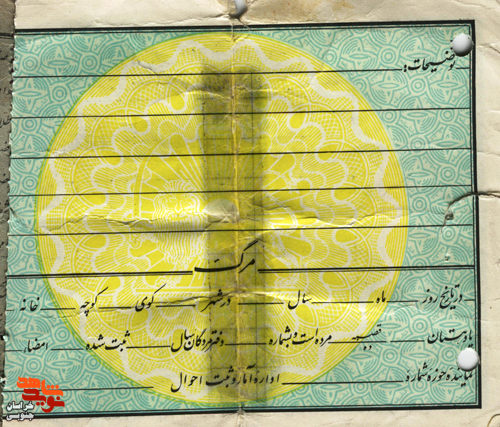 توضیحات:
مرگ
در تاریخ روز ماه سال در شهر کوی کوچه خانه
یا دهستان قصبه ده مرده است و بشماره دفتر مردگان سال ثبت شده امضاء
نماینده حوزه شماره اداره آمار و ثبت احوال
نوید شاهد
خراسان جنوبی